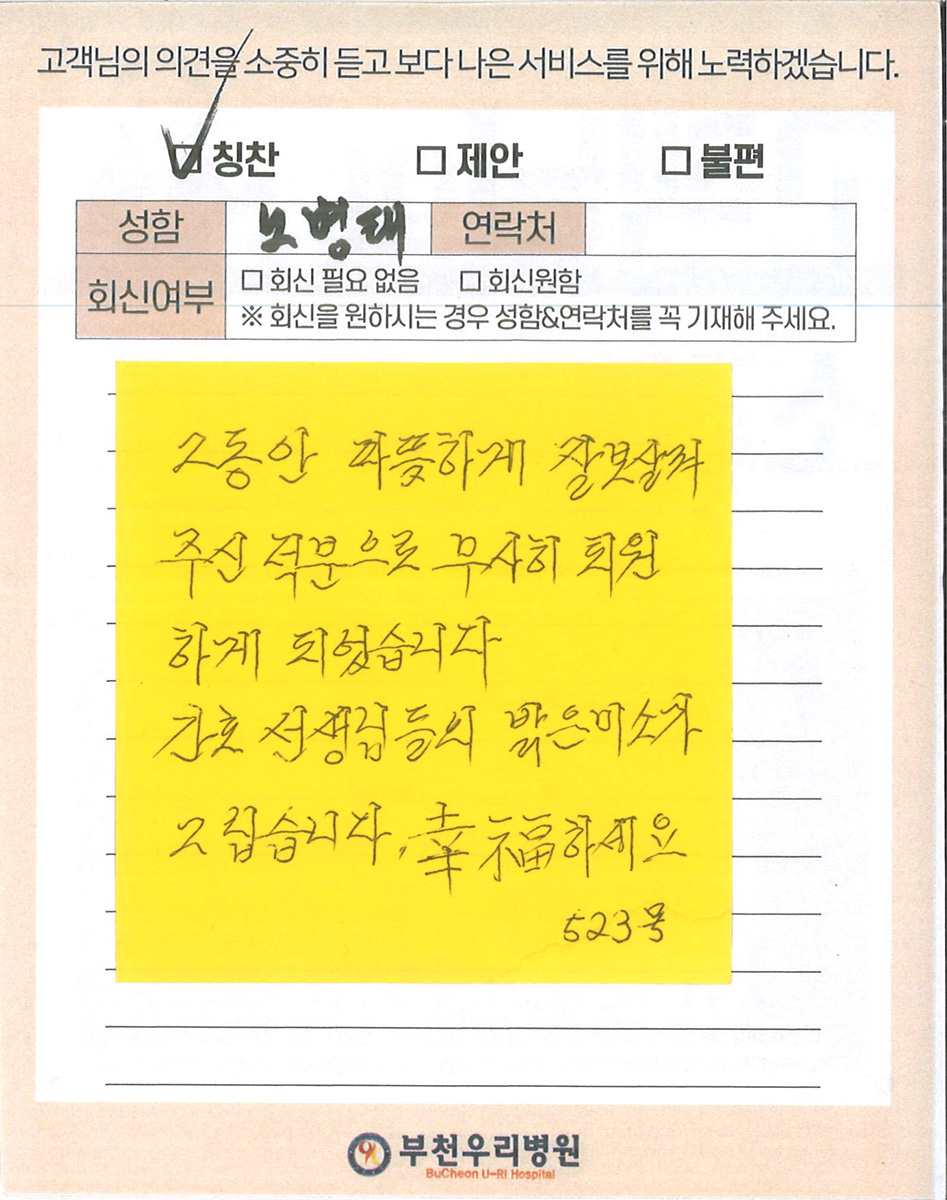 고객님의 의견을 소중히 듣고 보다 나은 서비스를 위해 노력하겠습니다.
☑ 칭찬 □ 제안 □ 불편
성함 노병태 연락처
회신여부 □ 회신 필요 없음 □ 회신원함
※ 회신을 원하시는 경우 성함&연락처를 꼭 기재해 주세요.
그동안 따뜻하게 잘보살펴
주신 덕분으로 무사히 퇴원
하게 되었습니다
간호 선생님들의 밝은미소가
그립습니다, 幸福하세요
523号
부천우리병원
BuCheon U-RI Hospital